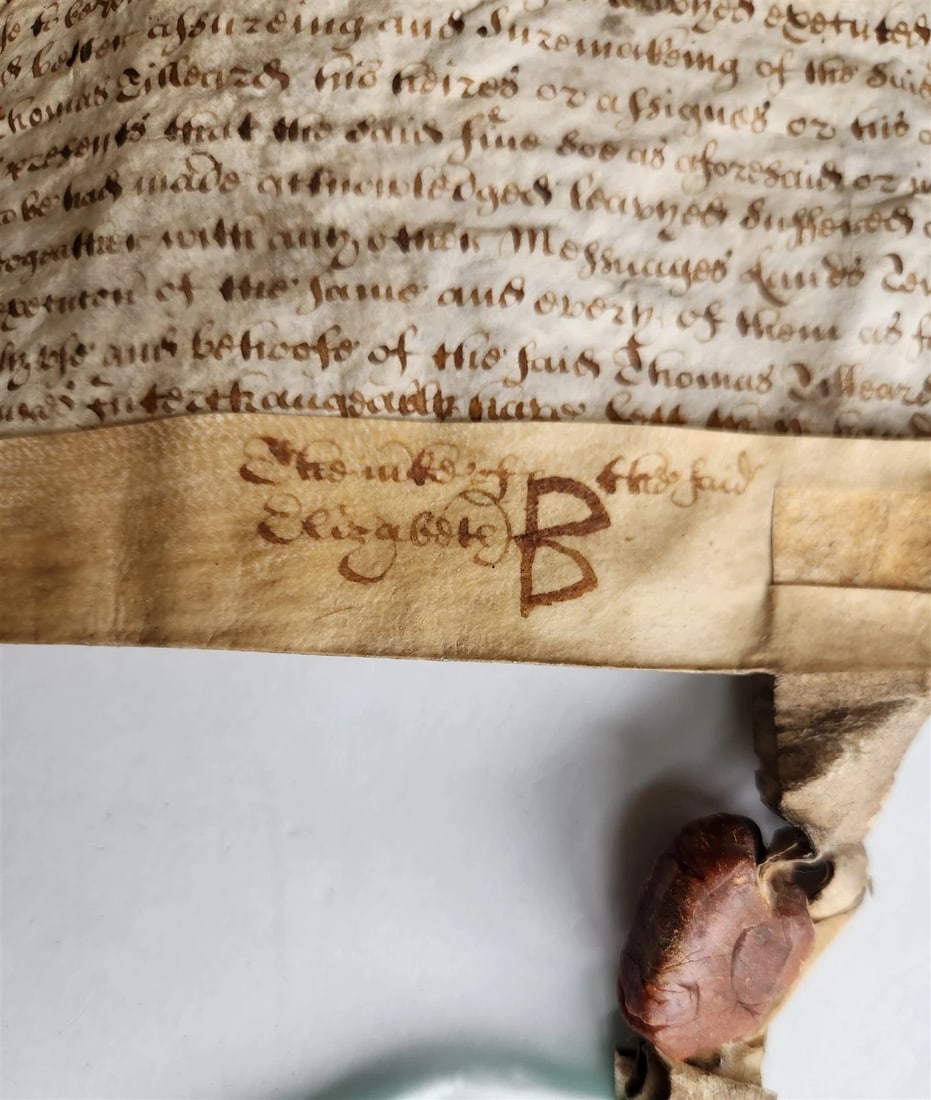 executed
better assureing and Suremakeing of the said
Thomas Tilleard his heires or assignes or his
presents that the said fine soe as aforesaid or
to be had made acknowledged leavyed suffered
togeather with any other Messuages Lands
execucon of the same and every of them as
use and behoofe of the said Thomas Tilleard
Interchangeably have sett
The mke of B the said
Elizabeth